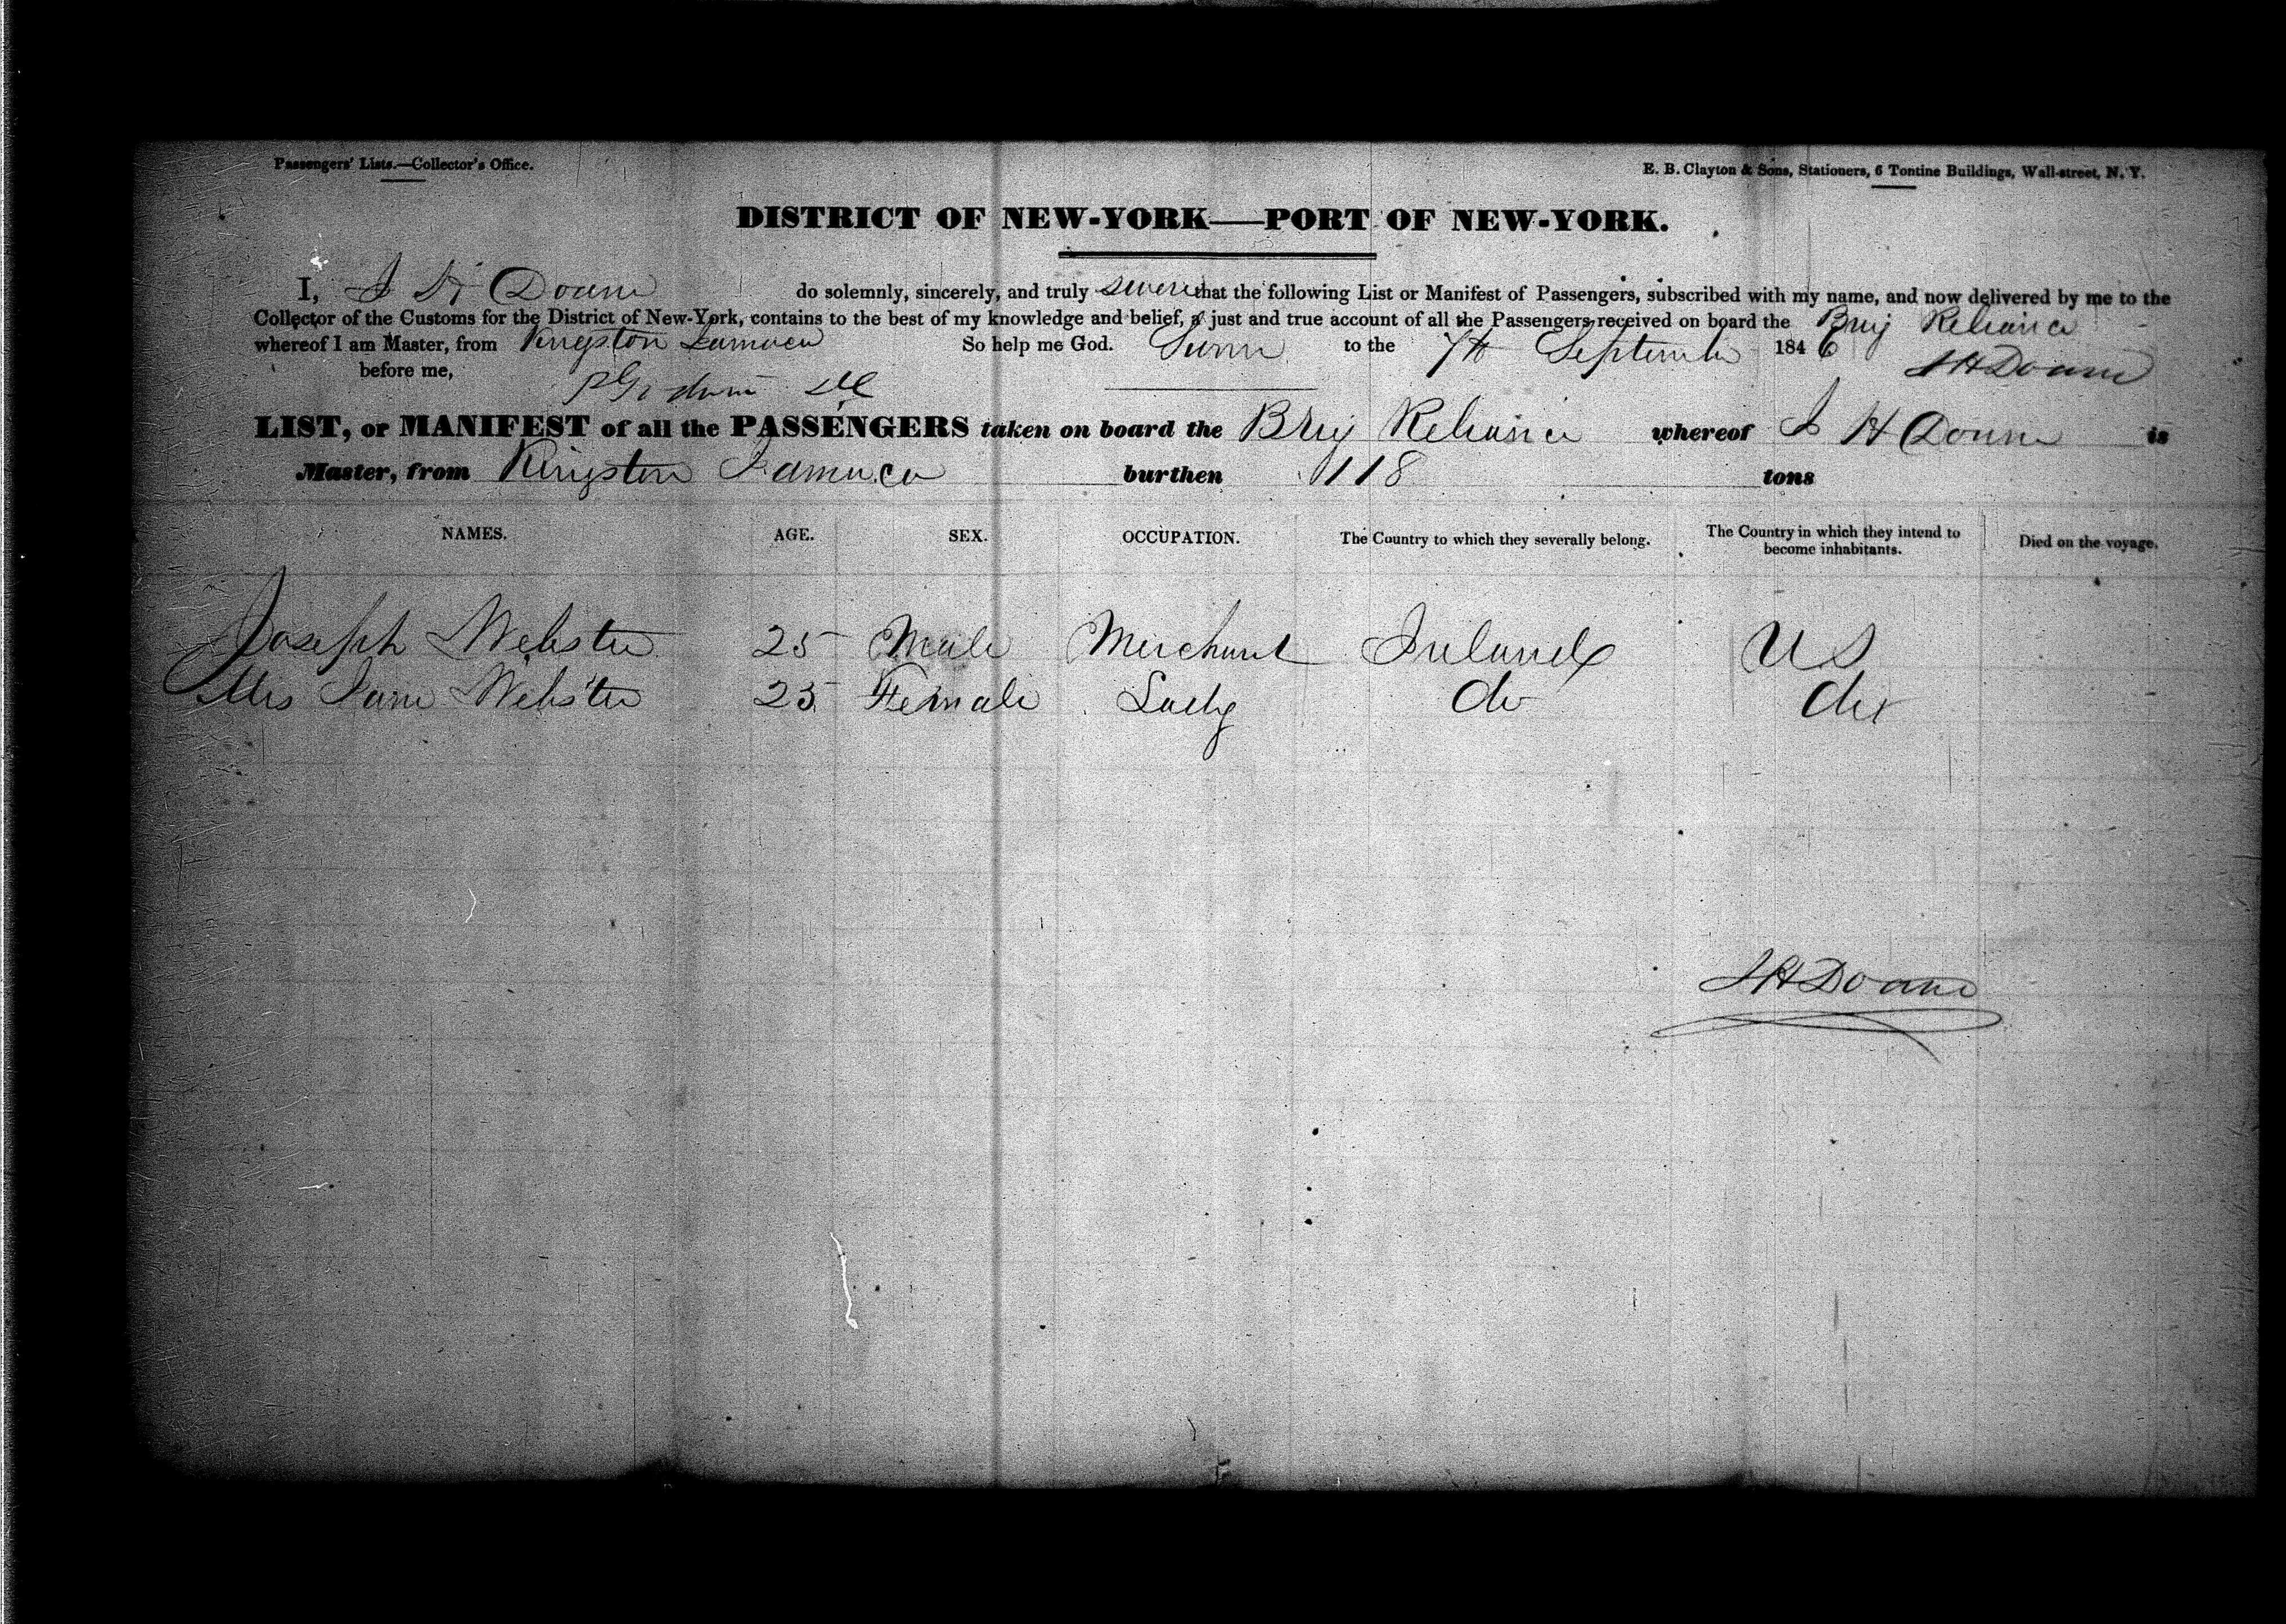 Passengers' Lists.—Collector's Office.
E. B. Clayton & Sons, Stationers, 6 Tontine Buildings, Wall-street, N. Y.
DISTRICT OF NEW-YORK—PORT OF NEW-YORK.
I, J H Doane do solemnly, sincerely, and truly swear that the following List or Manifest of Passengers, subscribed with my name, and now delivered by me to the
Collector of the Customs for the District of New-York, contains to the best of my knowledge and belief, a just and true account of all the Passengers received on board the Brig Reliance
whereof I am Master, from Kingston Jamaica So help me God. Sworn to the 7th September 1846
before me, J H Doane
LIST, or MANIFEST of all the PASSENGERS taken on board the Brig Reliance whereof J H Doane is
Master, from Kingston Jamaica burthen 118 tons
NAMES. AGE. SEX. OCCUPATION. The Country to which they severally belong. The Country in which they intend to become inhabitants. Died on the voyage.
Joseph Webster 25 Male Merchant Ireland US
Mrs Jane Webster 23 Female Lady do do
J H Doane